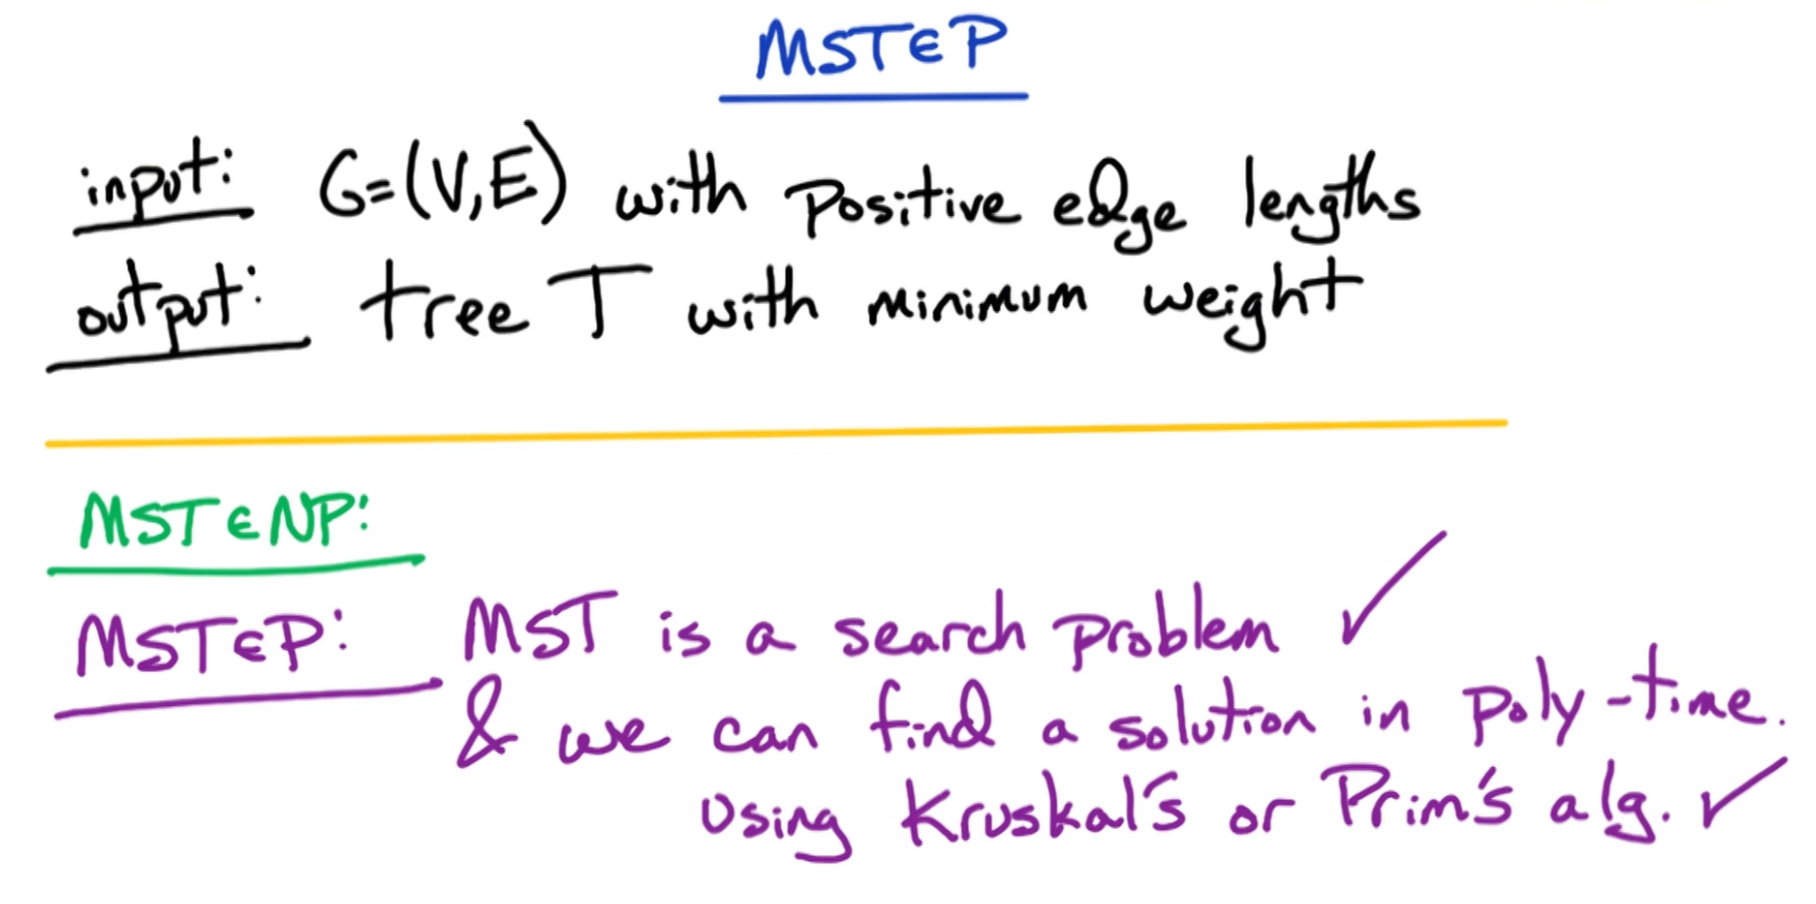 MST∈P
input: G=(V,E) with positive edge lengths
output: tree T with minimum weight
MST∈NP:
MST∈P: MST is a search problem ✓
& we can find a solution in poly-time.
using Kruskal's or Prim's alg. ✓